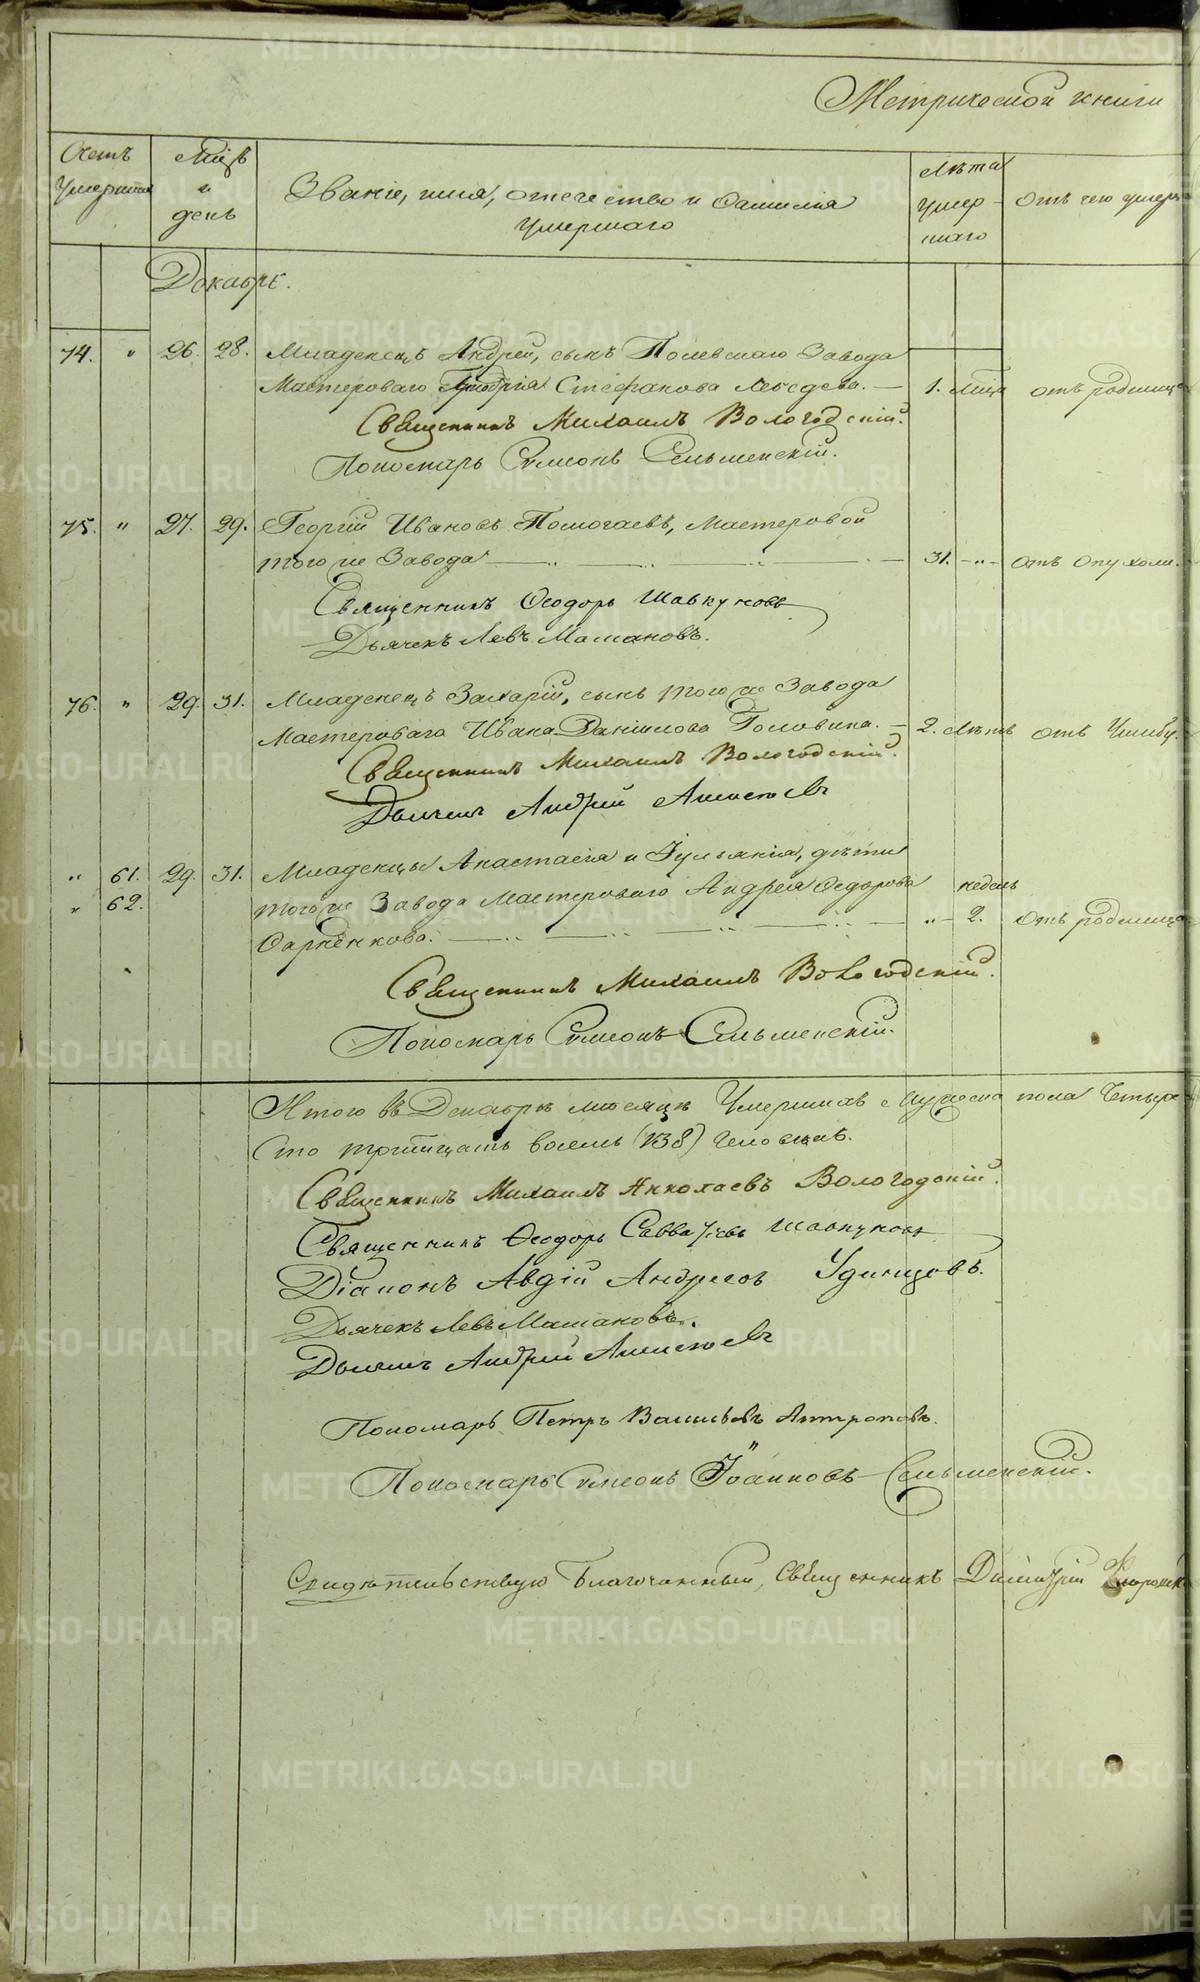 Метрической книги
Счетъ умершихъ
Мцъ и день
Званіе, имя, отечество и фамилія умершаго
Лѣта умершаго
Отъ чего умеръ
Декабрь.
74. " 26. 28. Младенецъ Андрей, сынъ Полевскаго Завода
Мастероваго Стефанова Лебедева. — 1. мца отъ родимца
Священникъ Михаилъ Вологодскій.
Пономарь Сѵмеонъ Сельменскій.
75. " 27. 29. Георгій Ивановъ Помогаевъ, мастеровой
того же Завода — 31. - " - отъ опухоли.
Священникъ Ѳеодоръ Шавкуновъ
Дьячекъ Левъ Мамановъ.
76. " 29. 31. Младенецъ Захарій, сынъ того же Завода
Мастероваго Ивана Даніилова Головина. — 2. лѣтъ отъ
Священникъ Михаилъ Вологодскій.
Дьячекъ Андрей
" 61. 29. 31. Младенцы Анастасія и Іульянія, дѣти
" 62. того же Завода Мастероваго Андрея Ѳедорова недель
" - 2. отъ родимца
Священникъ Михаилъ Вологодскій.
Пономарь Сѵмеонъ Сельменскій.
Итого въ Декабрѣ месяцѣ Умершихъ мужеска пола четыре
сто тритцать восемь (138) человекъ.
Священникъ Михаилъ Николаевъ Вологодскій.
Священникъ Ѳеодоръ Савватіевъ Шавкуновъ
Діаконъ Авдій Андреевъ Удинцовъ.
Дьячекъ Левъ Мамановъ.
Дьячекъ Андрей
Пономарь Петръ Васильевъ Антроповъ.
Пономарь Сѵмеонъ Іоанновъ Сельменскій.
Свидѣтельствую Благочинный, Священникъ Димитрій
METRIKI.GASO-URAL.RU